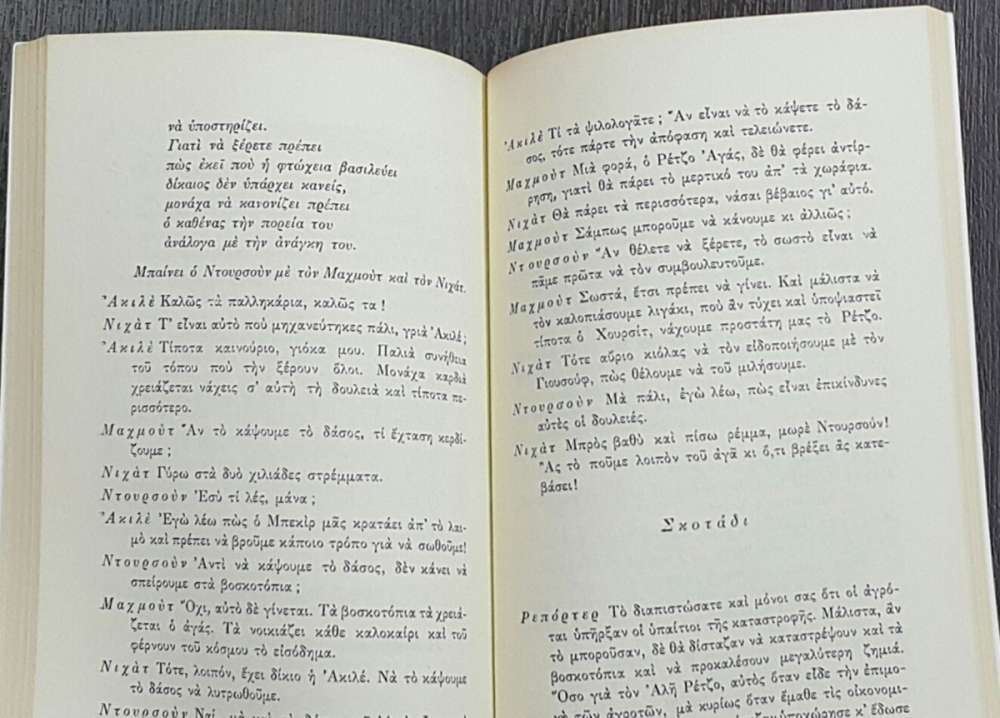 νὰ ὑποστηρίζει.
Γιατὶ νὰ ξέρετε πρέπει
πὼς ἐκεῖ ποὺ ἡ φτώχεια βασιλεύει
δίκαιος δὲν ὑπάρχει κανείς,
μονάχα νὰ κανονίζει πρέπει
ὁ καθένας τὴν πορεία του
ἀνάλογα μὲ τὴν ἀνάγκη του.
Μπαίνει ὁ Ντουρσοὺν μὲ τὸν Μαχμοὺτ καὶ τὸν Νιχάτ.
Ἀκιλὲ Καλῶς τὰ παλληκάρια, καλῶς τα!
Νιχὰτ Τ' εἶναι αὐτὸ ποὺ μηχανεύτηκες πάλι, γριὰ Ἀκιλέ;
Ἀκιλὲ Τίποτα καινούριο, γιόκα μου. Παλιὰ συνήθεια
τοῦ τόπου ποὺ τὴν ξέρουν ὅλοι. Μονάχα καρδιὰ
χρειάζεται νάχεις σ' αὐτὴ τὴ δουλειὰ καὶ τίποτα πε-
ρισσότερο.
Μαχμοὺτ Ἂν τὸ κάψουμε τὸ δάσος, τί ἔχταση κερδί-
ζουμε;
Νιχὰτ Γύρω στὰ δυὸ χιλιάδες στρέμματα.
Ντουρσοὺν Ἐσὺ τί λές, μάνα;
Ἀκιλὲ Ἐγὼ λέω πὼς ὁ Μπεκὶρ μᾶς κρατάει ἀπ' τὸ λαι-
μὸ καὶ πρέπει νὰ βροῦμε κάποιο τρόπο γιὰ νὰ σωθοῦμε!
Ντουρσοὺν Ἀντὶ νὰ κάψουμε τὸ δάσος, δὲν κάνει νὰ
σπείρουμε στὰ βοσκοτόπια;
Μαχμοὺτ Ὄχι, αὐτὸ δὲ γίνεται. Τὰ βοσκοτόπια τὰ χρειά-
ζεται ὁ ἀγάς. Τὰ νοικιάζει κάθε καλοκαίρι καὶ τοῦ
φέρνουν τοῦ κόσμου τὸ εἰσόδημα.
Νιχὰτ Τότε, λοιπόν, ἔχει δίκιο ἡ Ἀκιλέ. Νὰ τὸ κάψουμε
τὸ δάσος νὰ λυτρωθοῦμε.
Ντουρσοὺν Ναί,
Ἀκιλὲ Τί τὰ ψιλολογᾶτε; Ἂν εἶναι νὰ τὸ κάψετε τὸ δά-
σος, τότε πάρτε τὴν ἀπόφαση καὶ τελειώνετε.
Μαχμοὺτ Μιὰ φορά, ὁ Ρέτζο Ἀγάς, δὲ θὰ φέρει ἀντίρ-
ρηση, γιατὶ θὰ πάρει τὸ μερτικό του ἀπ' τὰ χωράφια.
Νιχὰτ Θὰ πάρει τὰ περισσότερα, νάσαι βέβαιος γι' αὐτό.
Μαχμοὺτ Σάμπως μποροῦμε νὰ κάνουμε κι ἀλλιῶς;
Ντουρσοὺν Ἂν θέλετε νὰ ξέρετε, τὸ σωστὸ εἶναι νὰ
πᾶμε πρῶτα νὰ τὸν συμβουλευτοῦμε.
Μαχμοὺτ Σωστά, ἔτσι πρέπει νὰ γίνει. Καὶ μάλιστα νὰ
τὸν καλοπιάσουμε λιγάκι, ποὺ ἂν τύχει καὶ ὑποψιαστεῖ
τίποτα ὁ Χουρσίτ, νάχουμε προστάτη μας τὸ Ρέτζο.
Νιχὰτ Τότε αὔριο κιόλας νὰ τὸν εἰδοποιήσουμε μὲ τὸν
Γιουσούφ, πὼς θέλουμε νὰ τοῦ μιλήσουμε.
Ντουρσοὺν Μὰ πάλι, ἐγὼ λέω, πὼς εἶναι ἐπικίνδυνες
αὐτὲς οἱ δουλειές.
Νιχὰτ Μπρὸς βαθὺ καὶ πίσω ρέμμα, μωρὲ Ντουρσούν!
Ἂς τὸ ποῦμε λοιπὸν τοῦ ἀγᾶ κι ὅ,τι βρέξει ἂς κατε-
βάσει!
Σκοτάδι
Ρεπόρτερ Τὸ διαπιστώσατε καὶ μόνοι σας ὅτι οἱ ἀγρό-
ται ὑπῆρξαν οἱ ὑπαίτιοι τῆς καταστροφῆς. Μάλιστα, ἂν
τὸ μποροῦσαν, δὲ θὰ δίσταζαν νὰ καταστρέψουν καὶ τὰ
βοσκοτόπια καὶ νὰ προκαλέσουν μεγαλύτερη ζημιά.
Ὅσο γιὰ τὸν Ἀλῆ Ρέτζο, αὐτὸς ὅταν εἶδε τὴν ἐπιμο-
νὴ τῶν ἀγροτῶν, μὰ κυρίως ὅταν ἔμαθε τὶς οἰκονομι-
ὑποχώρησε κ' ἔδωσε